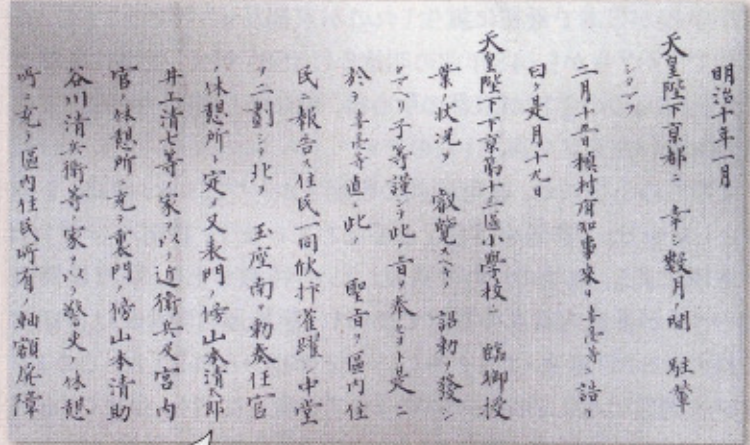 明治十年一月
天皇陛下京都ニ 幸シ数月ノ間 駐輦
シタマフ
二月十五日槙村府知事来リ喜兵衛等ニ詰リ
曰ク是月十九日
天皇陛下下京第十三區小學校ニ 臨御授
業ノ状況ヲ 叡覧スヘキノ 詔勅ヲ發シ
タマヘリ予等謹シテ此ノ旨ヲ奉セヨト是ニ
於テ 等直ニ此ノ 聖旨ヲ區内住
民ニ報告ス住民一同欣抃雀躍シ中堂
ヲ二劃シテ北ヲ 玉座南ヲ勅奏任官
ノ休憩所ト定ノ又表門ノ傍山本清太郎
井上清七等ノ家ヲ以テ近衛兵及宮内
官ノ休憩所ニ充テ裏門ノ傍山本清助
谷川清兵衛等ノ家ヲ以テ警史ノ休憩
所ニ充ツ區内住民所有ノ軸額屏障